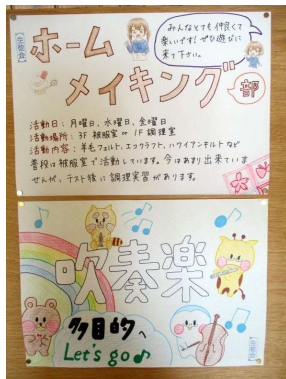 【生徒会】
ホーム
メイキング
部
みんなとても仲良くて
楽しいです！ぜひ遊びに
来て下さい。
活動日：月曜日、水曜日、金曜日
活動場所：3F 被服室 or 1F 調理室
活動内容：羊毛フェルト、エコクラフト、ハワイアンキルトなど
普段は被服室で活動しています。今はあまり出来ていま
せんが、テスト後に調理実習があります。
吹奏楽
多目的へ
Let's go♪